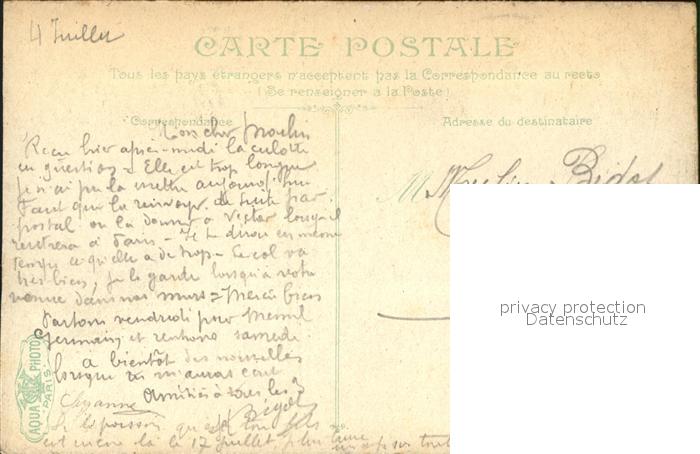 4 Juillet
CARTE POSTALE
Tous les pays étrangers n'acceptent pas la Correspondance au recto
(Se renseigner à la Poste)
Correspondance
Adresse du destinataire
Mon cher Moulin
Reçu hier après-midi la culotte
en question = Elle est trop longue
je n'ai pu la mettre aujourd'hui
Faut que la renvoye de suite par
postal ou la donner à Victor lorsqu'il
rentrera à Paris - Je te dirai en même
temps ce qu'elle a de trop - Le col va
très bien, je le garde jusqu'à votre
venue dans nos murs = Merci bien
Partons vendredi pour Mesnil
Germain, et rentrons samedi.
à bientôt des nouvelles
lorsque tu m'auras écrit
Amitiés à tous les 3
Suzanne
Bigot
Si le poisson
est encore là le 17 juillet,
M Moulin Bidot
AQUA PHOTO
PARIS
privacy protection
Datenschutz